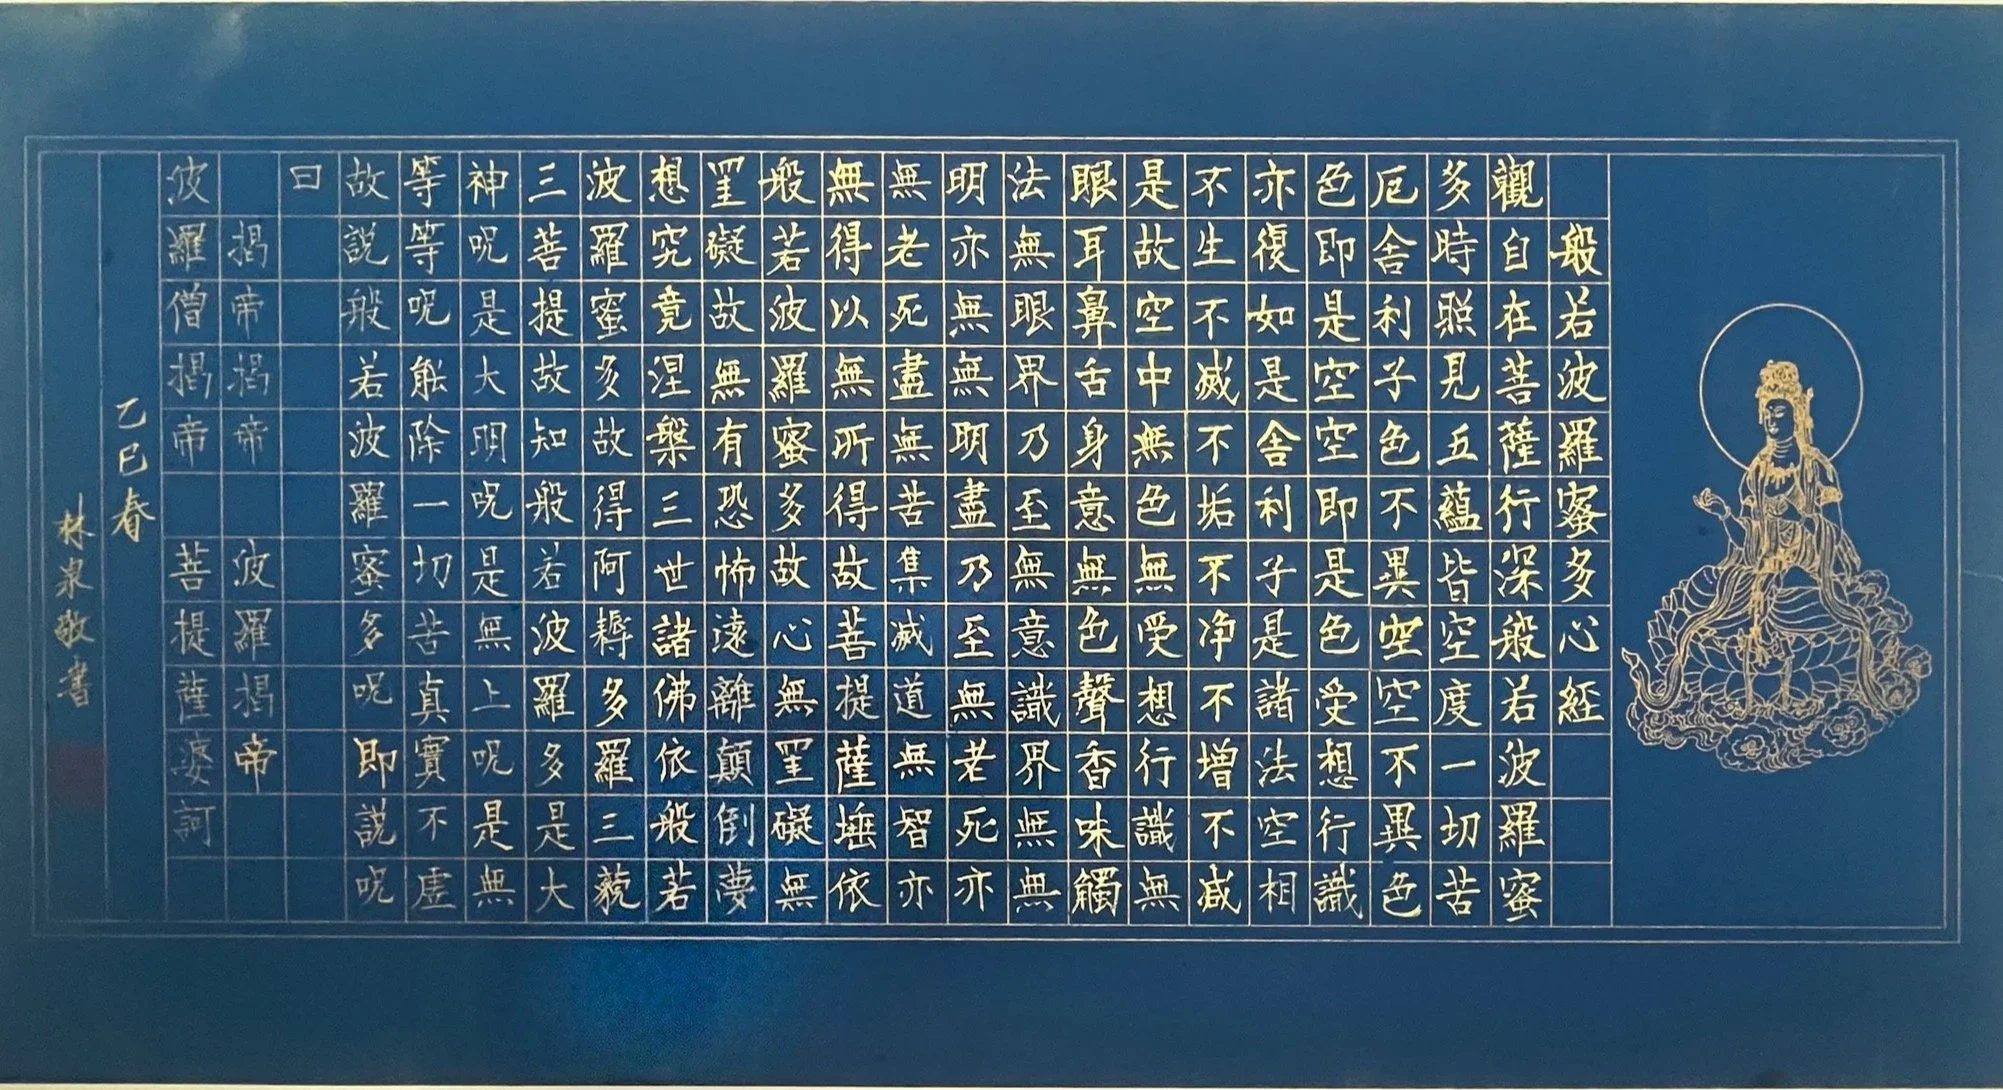 般若波羅蜜多心経
觀自在菩薩行深般若波羅蜜
多時照見五蘊皆空度一切苦
厄舍利子色不異空空不異色
色即是空空即是色受想行識
亦復如是舍利子是諸法空相
不生不滅不垢不净不增不減
是故空中無色無受想行識無
眼耳鼻舌身意無色聲香味觸
法無眼界乃至無意識界無無
明亦無無明盡乃至無老死亦
無老死盡無苦集滅道無智亦
無得以無所得故菩提薩埵依
般若波羅蜜多故心無罣礙無
罣礙故無有恐怖遠離顛倒夢
想究竟涅槃三世諸佛依般若
波羅蜜多故得阿耨多羅三藐
三菩提故知般若波羅多是大
神呪是大明呪是無上呪是無
等等呪能除一切苦真實不虛
故説般若波羅蜜多呪即説呪
曰
揭帝揭帝 波羅揭帝
波羅僧揭帝 菩提薩婆訶
乙巳春
林泉敬書